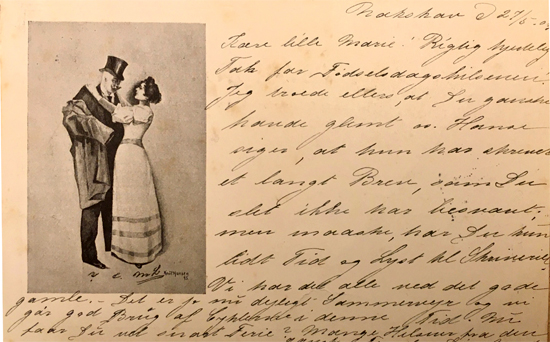 Nakskov d 27/5-0
Kære lille Marie! Rigtig hjertelig
Tak for Fødselsdagshilsenen.
Jeg troede ellers, at Du ganske
havde glemt os. Hanne
siger, at hun har skrevet
et langt Brev, som Du
slet ikke har besvaret,
men maaske, har Du kun
lidt Tid og Lyst til Skriveriet
Vi har det alle ved det gode
gamle. - Det er jo nu dejligt Sommervejr og vi
gør god Brug af Cyklerne i denne Tid. Nu
faar Du vel snart Ferie? Mange Hilsner fra den